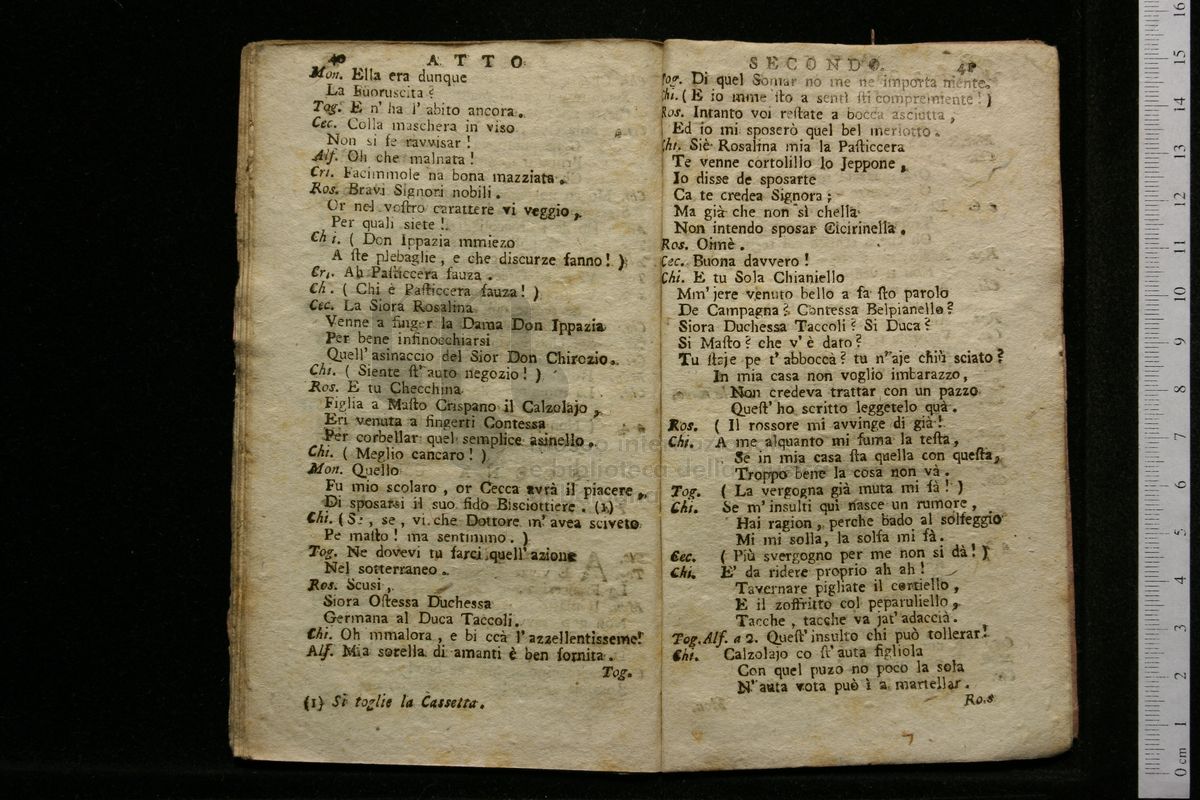 40 ATTO
Mon. Ella era dunque
La Fuoruscita?
Tog. E n' ha l' abito ancora.
Cec. Colla maschera in viso
Non si fe ravvisar!
Alf. Oh che malnata!
Cri. Facimmole na bona mazziata.
Ros. Bravi Signori nobili.
Or nel vostro carattere vi veggio,
Per quali siete!
Chi. ( Don Ippazia mmiezo
A ste plebaglie, e che discurze fanno! )
Cri. Ah Pasticcera fauza.
Ch. ( Chi è Pasticcera fauza! )
Cec. La Siora Rosalina
Venne a finger la Dama Don Ippazia
Per bene infinocchiarsi
Quell' asinaccio del Sior Don Chirozio.
Chi. ( Siente st' auto negozio! )
Ros. E tu Checchina
Figlia a Masto Crispano il Calzolajo,
Eri venuta a fingerti Contessa
Per corbellar quel semplice asinello.
Chi. ( Meglio cancaro! )
Mon. Quello
Fu mio scolaro, or Cecca avrà il piacere,
Di sposarsi il suo fido Bisciottiere. (1)
Chi. ( Si, se, vi che Dottore m' avea sciveto
Pe masto! ma sentimmo. )
Tog. Ne dovevi tu farci quell' azione
Nel sotterraneo.
Ros. Scusi,
Siora Ostessa Duchessa
Germana al Duca Taccoli.
Chi. Oh mmalora, e bi ccà l' azzellentisseme!
Alf. Mia sorella di amanti è ben fornita.
Tog.
(1) Si toglie la Cassetta.
SECONDO. 41
Tog. Di quel Somar no me ne importa niente.
Chi. ( E io mme sto a sentì sti compremiente! )
Ros. Intanto voi restate a bocca asciutta,
Ed io mi sposerò quel bel merlotto.
Chi. Siè Rosalina mia la Pasticcera
Te venne cortolillo lo Jeppone,
Io disse de sposarte
Ca te credea Signora;
Ma già che non sì chella
Non intendo sposar Cicirinella.
Ros. Oimè.
Cec. Buona davvero!
Chi. E tu Sola Chianiello
Mm' jere venuto bello a fa sto parolo
De Campagna? Contessa Belpianello?
Siora Duchessa Taccoli? Si Duca?
Si Masto? che v' è dato?
Tu staje pe t' abboccà? tu n' aje chiù sciato?
In mia casa non voglio imbarazzo,
Non credeva trattar con un pazzo
Quest' ho scritto leggetelo quà.
Ros. ( Il rossore mi avvinge di già!
Chi. A me alquanto mi fuma la testa,
Se in mia casa sta quella con questa,
Troppo bene la cosa non và.
Tog. ( La vergogna già muta mi fà! )
Chi. Se m' insulti qui nasce un rumore,
Hai ragion, perche bado al solfeggio
Mi mi solla, la solfa mi fà.
Cec. ( Più svergogno per me non si dà! )
Chi. E' da ridere proprio ah ah!
Tavernare pigliate il cortiello,
E il zoffritto col peparuliello,
Tacche, tacche va jat' adaccià.
Tog. Alf. a 2. Quest' insulto chi può tollerar!
Chi. Calzolajo co st' auta figliola
Con quel puzo no poco la sola
N' auta vota può ì a martellar.
Ros